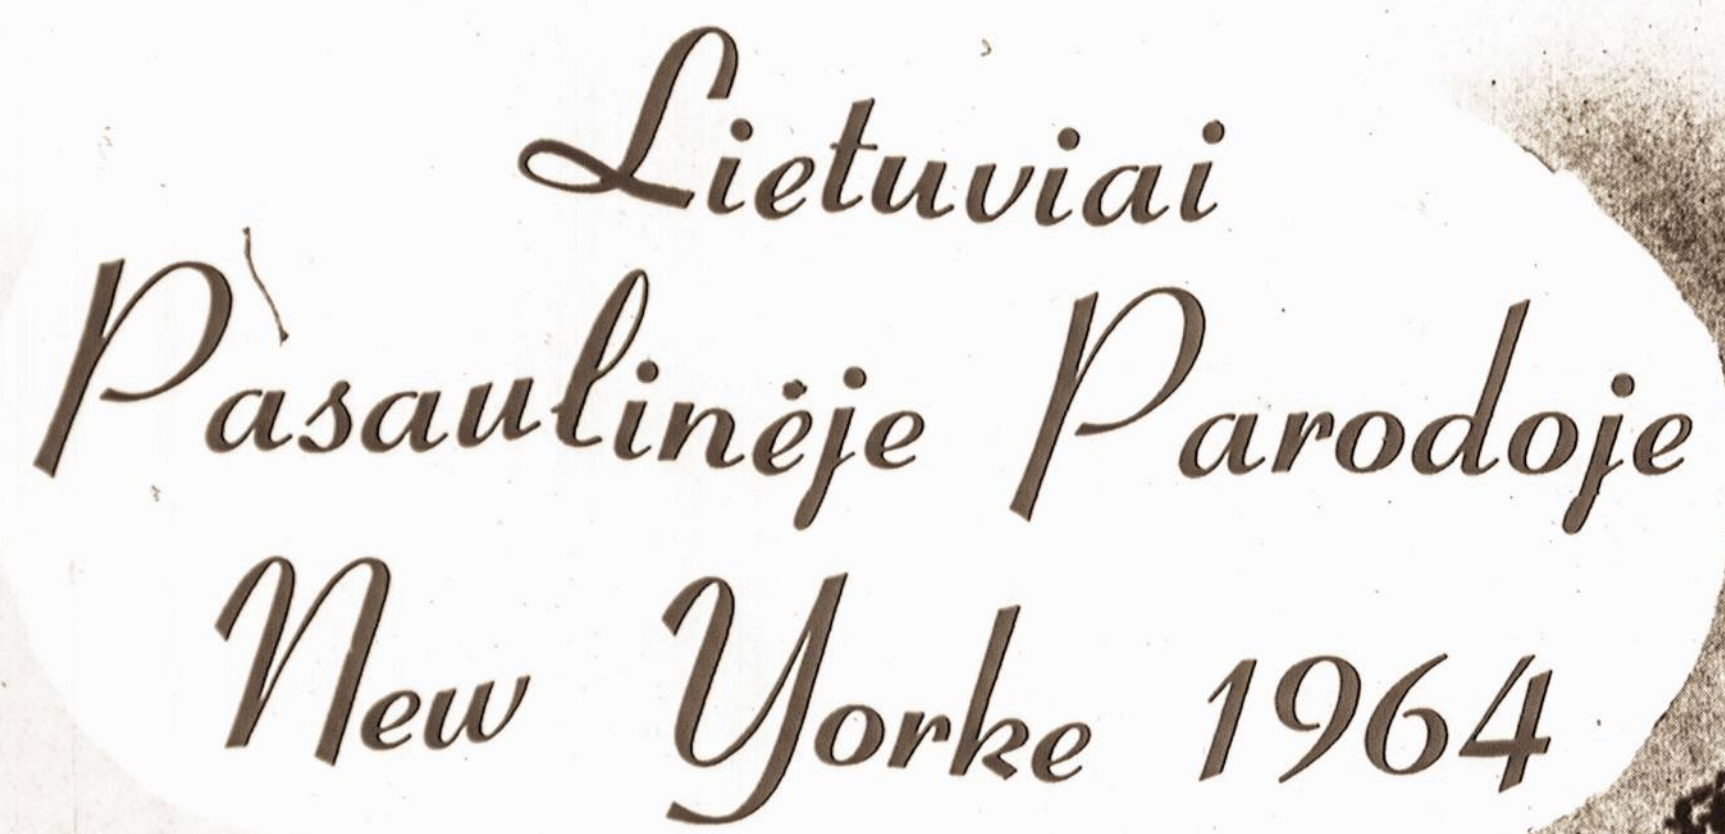 Lietuviai
Pasaulinėje Parodoje
New Yorke 1964